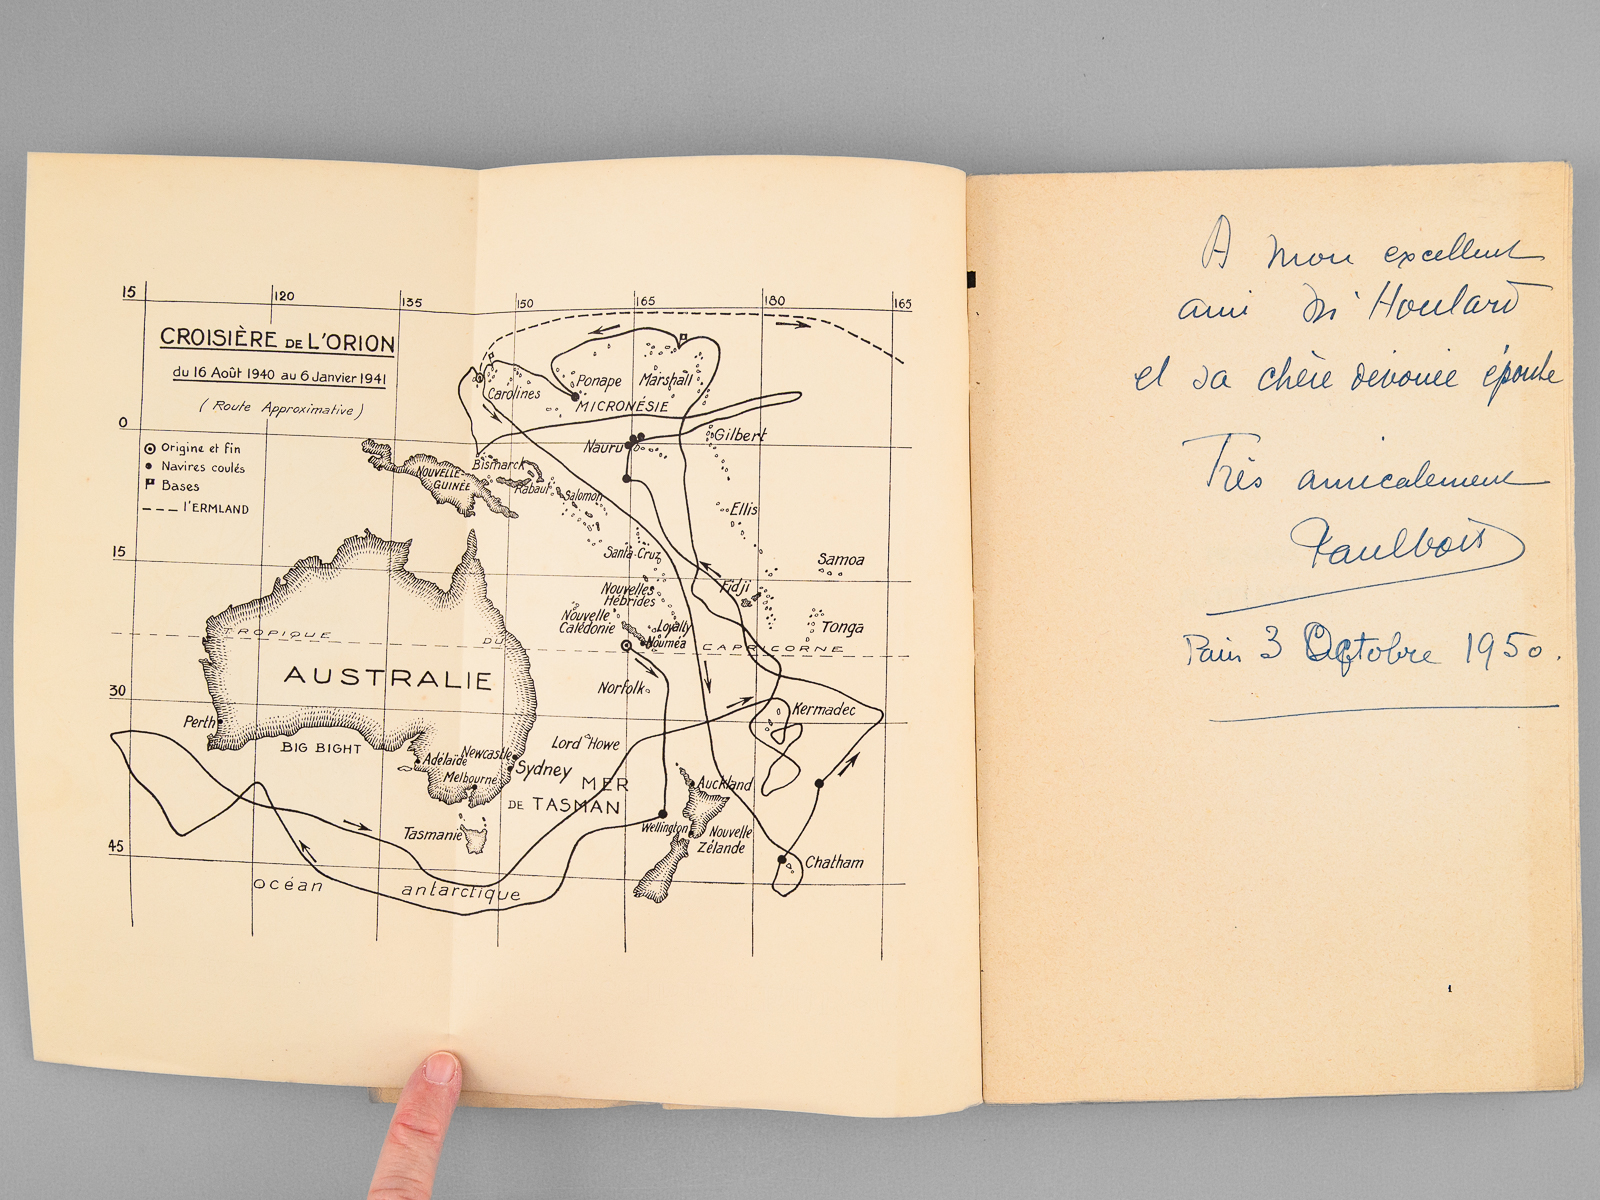 15
120
135
150
165
180
165
CROISIÈRE DE L'ORION
du 16 Août 1940 au 6 Janvier 1941
( Route Approximative )
Origine et fin
Navires coulés
Bases
l'ERMLAND
0
15
30
45
Carolines
Ponape
Marshall
MICRONÉSIE
Nauru
Gilbert
NOUVELLE-
GUINÉE
Bismarck
Rabaul
Salomon
Ellis
Santa-Cruz
Samoa
Nouvelles
Hébrides
Fidji
Nouvelle
Calédonie
Loyalty
Nouméa
Tonga
TROPIQUE DU CAPRICORNE
AUSTRALIE
Norfolk
Kermadec
Perth
BIG BIGHT
Lord Howe
Adélaïde
Newcastle
Sydney
Melbourne
MER
DE TASMAN
Auckland
Tasmanie
Wellington
Nouvelle
Zélande
Chatham
océan antarctique
A mon excellent
ami Houlard
et sa chère dévouée épouse
Très amicalement
Paris 3 Octobre 1950.
1